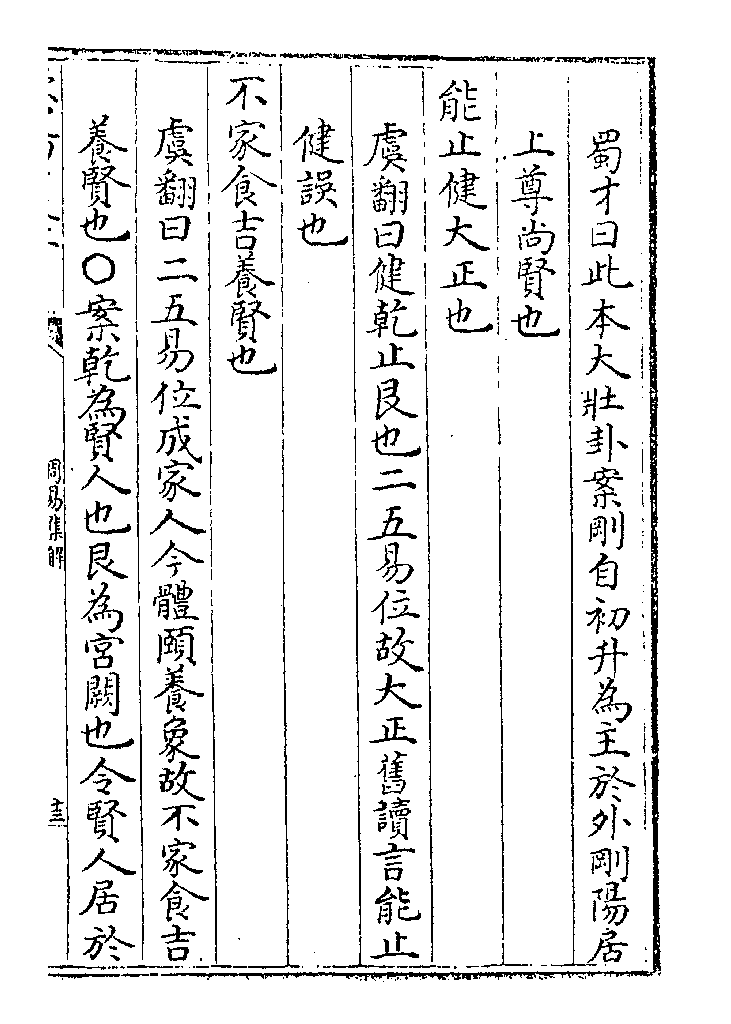 蜀才曰此本大壯卦案剛自初升為主於外剛陽居
上尊尚賢也
能止健大正也
虞翻曰健乾止艮也二五易位故大正舊讀言能止
健誤也
不家食吉養賢也
虞翻曰二五易位成家人今體頤養象故不家食吉
養賢也○案乾為賢人也艮為宮闕也令賢人居於
周易集解
十三